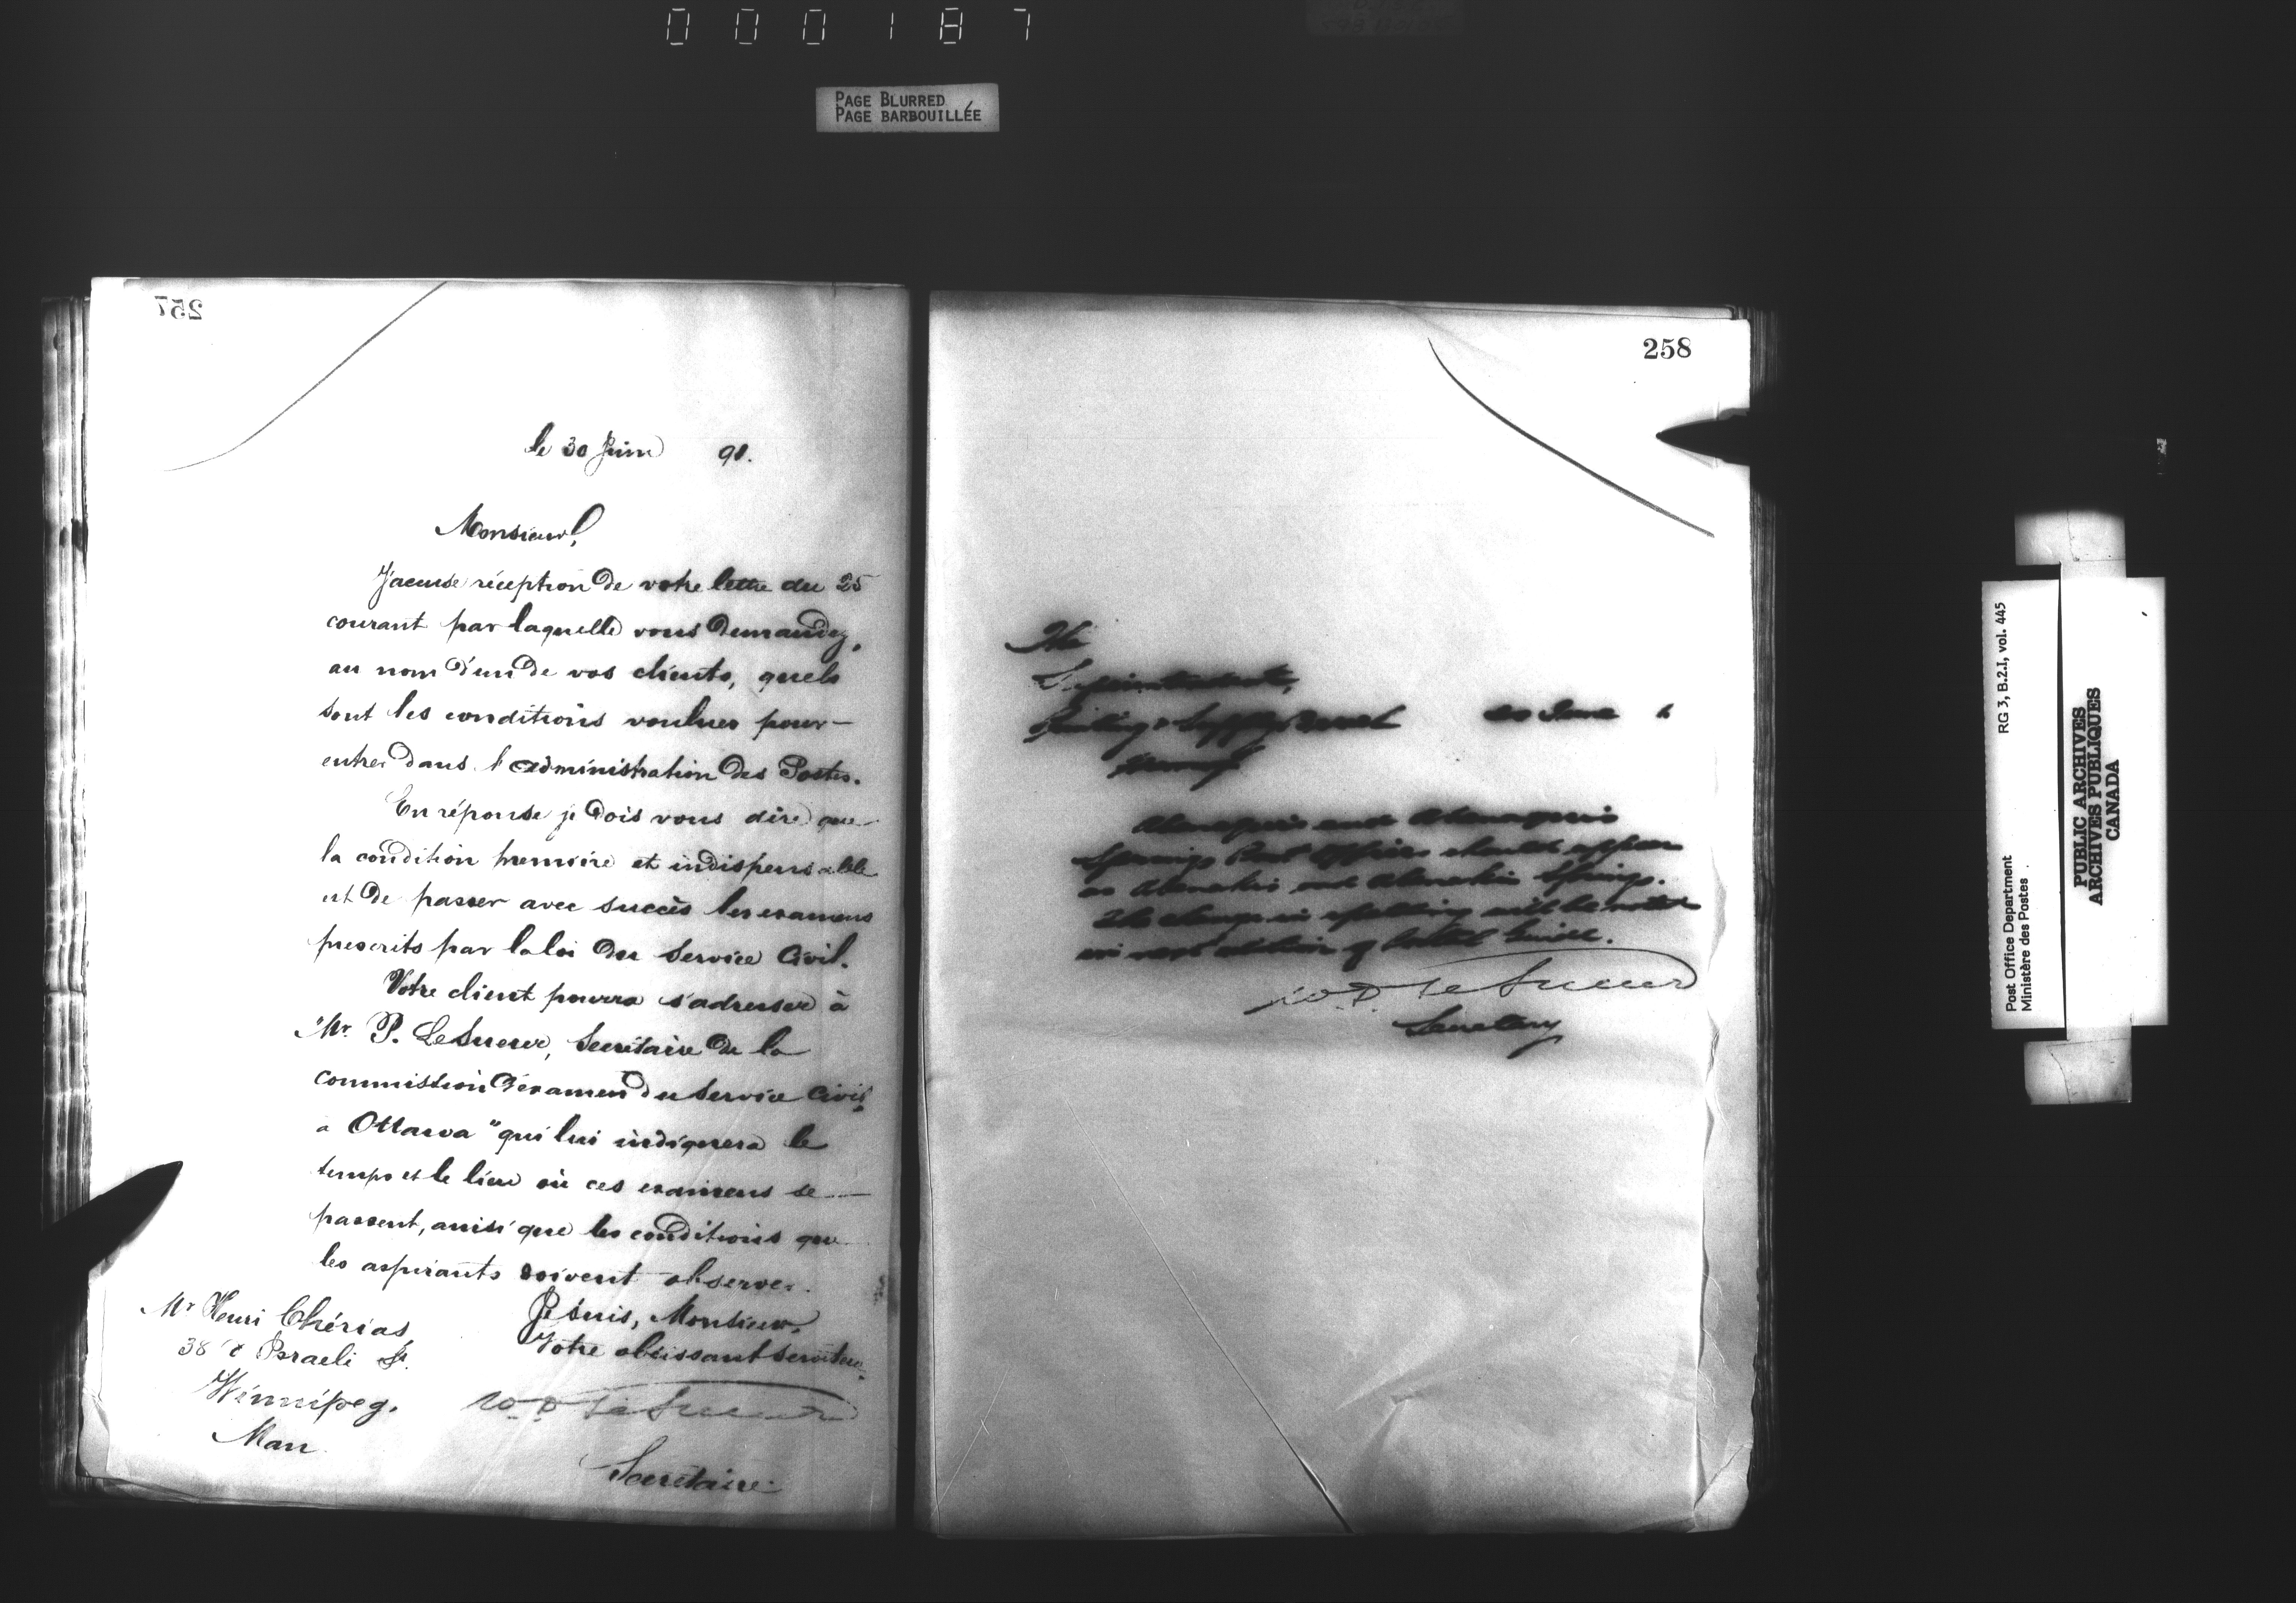 000187
PAGE BLURRED
PAGE BARBOUILLÉE
257
le 30 Juin 91.
Monsieur,
J'accuse réception de votre lettre du 25
courant par laquelle vous demandez,
au nom d'un de vos clients, quels
sont les conditions voulues pour
entrer dans l'administration des Postes.
En réponse je dois vous dire que
la condition premiere et indispensable
est de passer avec succès les examens
prescrits par la loi du Service Civil.
Votre client pourra s'adresser à
"Mr. P. LeSueur, Secrétaire de la
commission d'examen du Service Civil,
a Ottawa" qui lui indiquera le
temps et le lieu où ces examens se
passent, ainsi que les conditions que
les aspirants doivent observer.
Je suis, Monsieur,
Votre obéissant serviteur,
W. D. LeSueur
Secrétaire
Mr Henri Chérias,
38 Israeli St.
Winnipeg,
Man
258
The
Superintendent,
Printing & Supply Branch
30 June
Abenaquis and Abenaquis
Springs Post Offices should appear
as Abenakis and Abenakis Springs.
The change in spelling will be noted
in next edition of Postal Guide.
W. D. LeSueur
Secretary
Post Office Department
Ministère des Postes
RG 3, B.2.I, vol. 445
PUBLIC ARCHIVES
ARCHIVES PUBLIQUES
CANADA